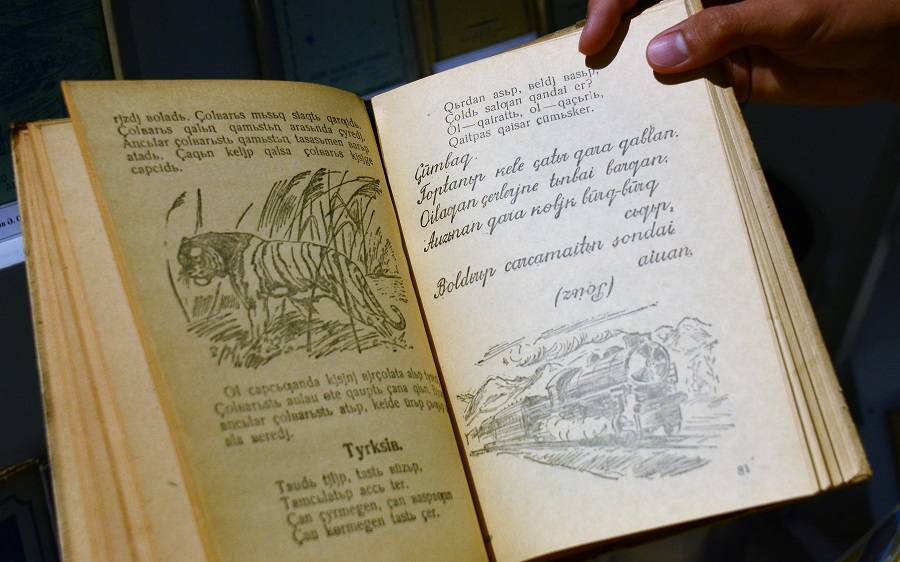 rjzdj ʙoladь. Çolʙarьs mьsьq siaqtь qarqidь.
Çolʙarьs qalьn qamьstьn arasьnda çyredj.
Ancьlar çolʙarьstь qamьstьn tasasьmen ʙarьp
atadь. Çaqьn keljp qalsa çolʙarьs kjsjge
capcidь.
Ol capcьqanda kjsjnj ʙjrçolata alьp
Çolʙarьstь aulau өte qauptь çana qiьn,
ancьlar çolʙarьstь atьp, keide
ala ʙeredj.
Tyrksiʙ.
Taudь tjljp, tastь ʙuzьp,
Tamcьlatьp accь ter.
Çan çyrmegen, çan ʙaspaqan
Çan kөrmegen tastь çer.
Qьrdan asьp, ʙeldj ʙasьp,
Çoldь salqan qandai er?
Ol—qairattь, ol—qaçьrlь,
Qaitpas qaisar çumьsker.
Çūmbaq.
Toptanьp kele çatьr qara qablan.
Oilaqan çerlerjne tьnbai barqan.
Auzьnan qara kөbjk būrq-būrq
cьqьp,
Boldьrьp carcamaitьn sondai
aiuan,
(Pojьz)
81